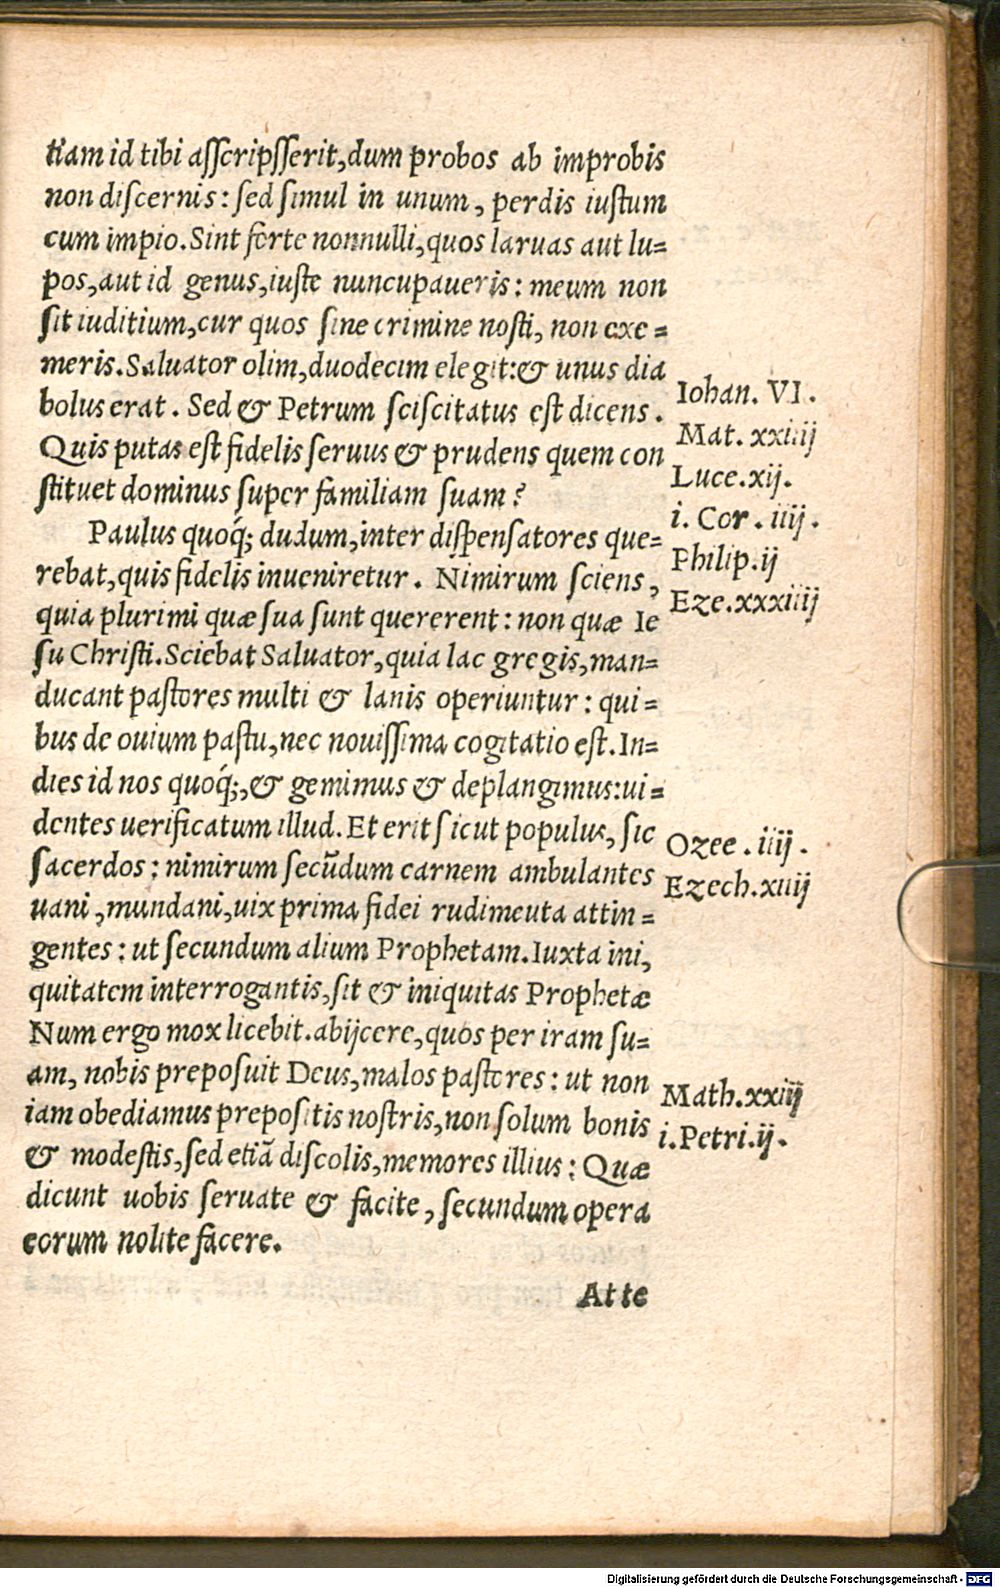 tiam id tibi aſſcripſſerit, dum probos ab improbis
non diſcernis: ſed ſimul in unum, perdis iuſtum
cum impio. Sint forte nonnulli, quos laruas aut lu=
pos, aut id genus, iuſte nuncupaueris: meum non
ſit iuditium, cur quos ſine crimine noſti, non exe=
meris. Saluator olim, duodecim elegit: & unus dia
bolus erat. Sed & Petrum ſciſcitatus eſt dicens.
Quis putas eſt fidelis ſeruus & prudens quem con
ſtituet dominus ſuper familiam ſuam?
Paulus quoq́; dudum, inter diſpenſatores que=
rebat, quis fidelis inueniretur. Nimirum ſciens,
quia plurimi quæ ſua ſunt quererent: non quæ Ie
ſu Chriſti. Sciebat Saluator, quia lac gregis, man=
ducant paſtores multi & lanis operiuntur: qui=
bus de ouium paſtu, nec nouiſſima cogitatio eſt. In=
dies id nos quoq́;, & gemimus & deplangimus: ui=
dentes uerificatum illud. Et erit ſicut populus, ſic
ſacerdos: nimirum ſecũdum carnem ambulantes
uani, mundani, uix prima fidei rudimeuta attin=
gentes: ut ſecundum alium Prophetam. Iuxta ini,
quitatem interrogantis, ſit & iniquitas Prophetæ
Num ergo mox licebit. abijcere, quos per iram ſu=
am, nobis prepoſuit Deus, malos paſtores: ut non
iam obediamus prepoſitis noſtris, non ſolum bonis
& modeſtis, ſed etiã diſcolis, memores illius: Quæ
dicunt uobis ſeruate & facite, ſecundum opera
eorum nolite facere.
Atte
Iohan. VI.
Mat. xxiiij
Luce. xij.
i. Cor. iiij.
Philip. ij
Eze. xxxiiij
Ozee. iiij.
Ezech. xiiij
Math. xxiij
i. Petri. ij.
Digitalisierung gefördert durch die Deutsche Forschungsgemeinschaft - DFG